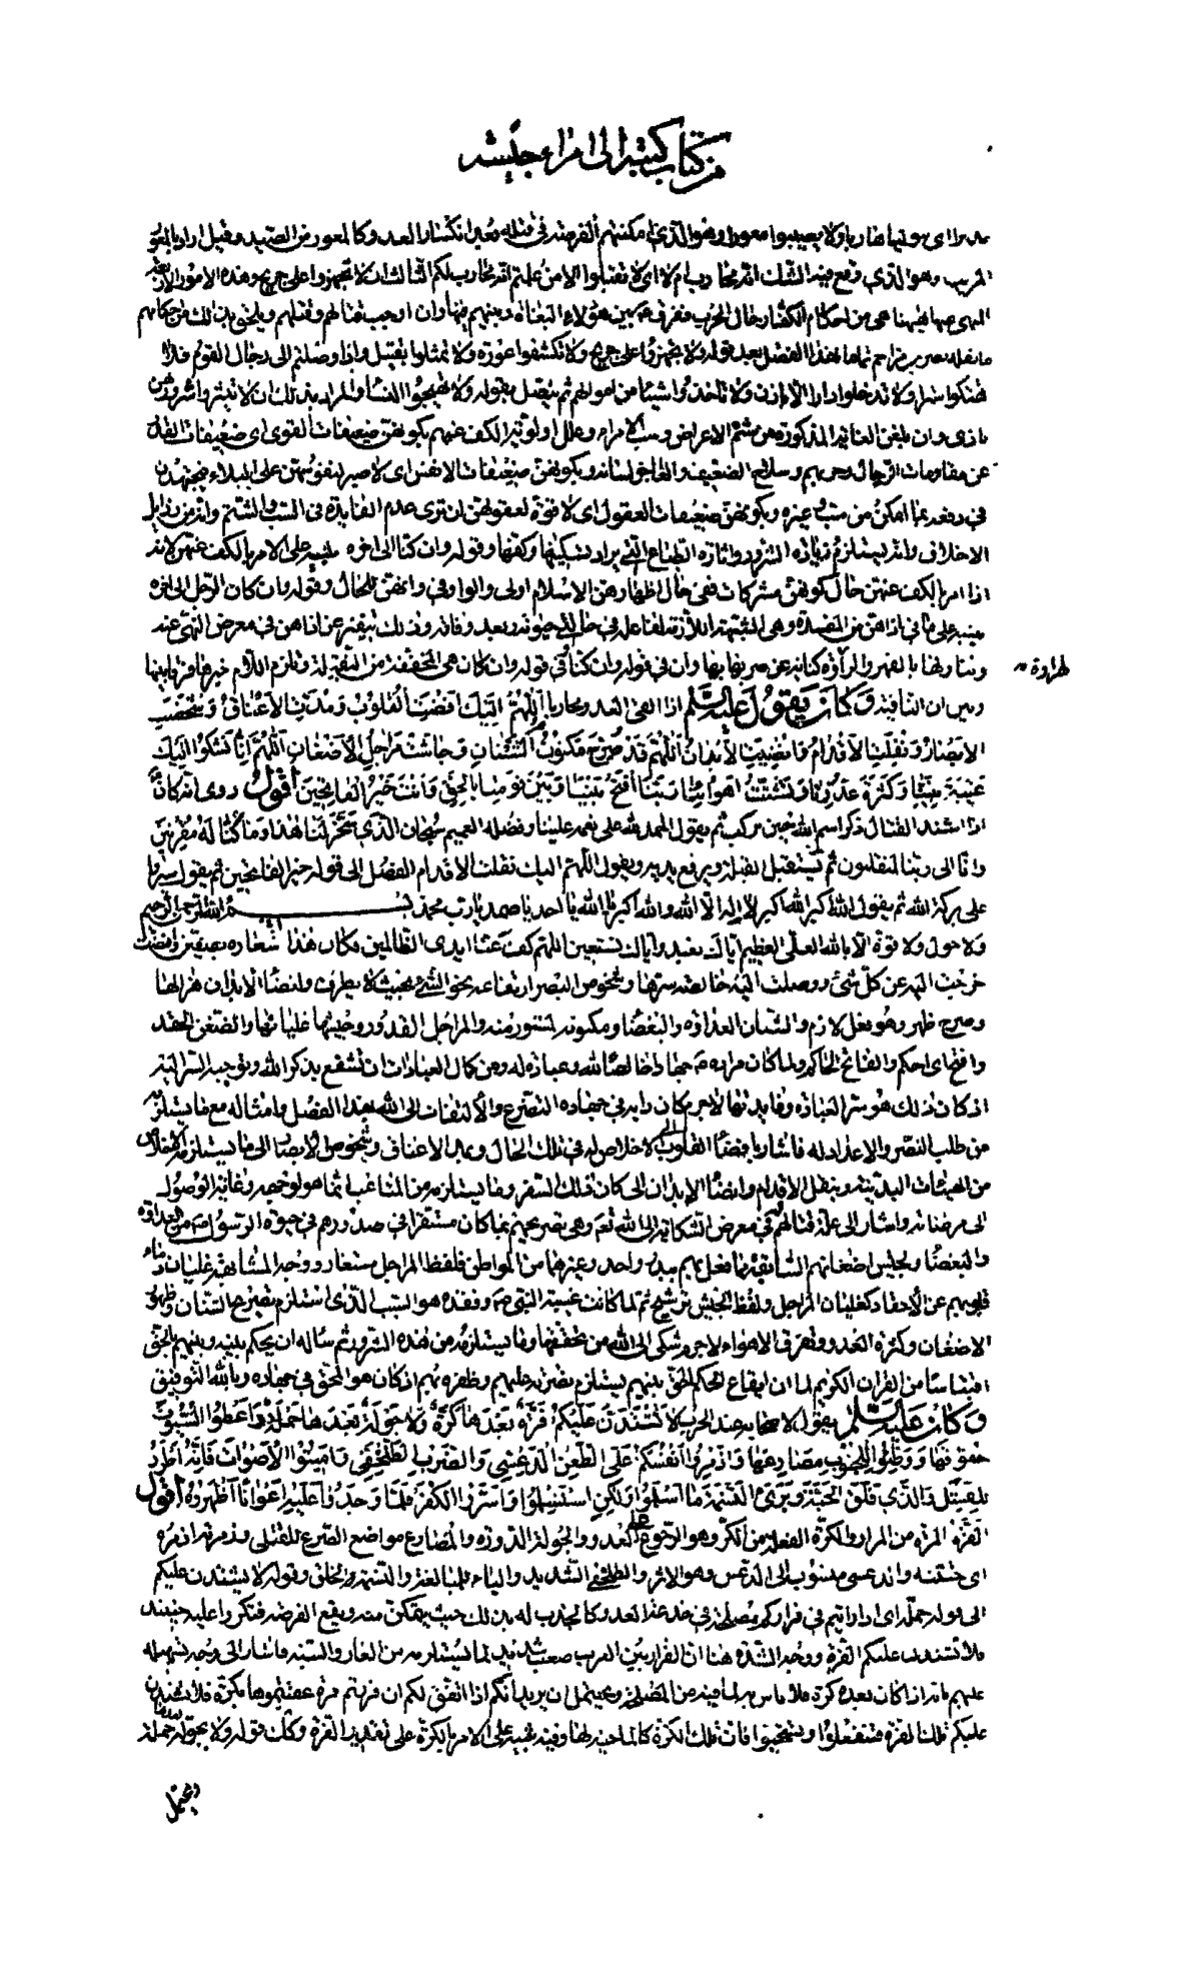 من كتاب كتبه الى امراء جيشه
ولا يصيبوا معورا وهو الذي امكنتهم الفرصة في قتله بعد انكسار العدو كالمعور من الصيد وقيل اراد بالمعور
المريب وهو الذي وقع فيه الشك انه محارب ام لا اى لا تقتلوا الا من علمتم انه محارب لكم الثالث ان لا تجهزوا على جريح وهذه الامور الاربعة
المنهى عنها هيهنا هي من احكام الكفار حال الحرب ففرق بين هؤلاء البغاة وبينهم فيها وان اوجب قتالهم وقتلهم ويلحق بذلك من احكامهم
ما نقله نصر بن مزاحم تمام هذا الفصل بعد قوله ولا تجهزوا على جريح ولا تكشفوا عورة ولا تمثلوا بقتيل واذا وصلتم الى رجال القوم فلا
تهتكوا سترا ولا تدخلوا دارا الا باذن ولا تاخذوا شيئا من اموالهم ثم يتصل بقوله ولا تهيجوا النساء والمراد بذلك ان لا تثيروا شرورهن
باذى وان بلغن الغاية المذكورة من شتم الاعراض وسب الامراء وعلل اولوية الكف عنهم بكونهن ضعيفات القوى اى ضعيفات القدر
عن مقاومات الرجال وحربهم وسلاح الضعيف والعاجز لسانه وبكونهن ضعيفات الانفس اى لا صبر لنفوسهن على البلاء فيجتهدن
في دفعه بما امكن من سب وغيره وبكونهن ضعيفات العقول اى لا قوة لعقولهن ان ترى عدم الفايدة في السب والشتم وانه من رذايل
الاخلاق وانه يستلزم زيادة الشرور واثارة الطباع التي يراد تسكينها وكفها وقوله وان كنا الى اخره تنبيه على الامر بالكف عنهن لانه
اذا امر بالكف عنهن حال كونهن مشركات ففي حال اظهارهن الاسلام اولى والواو في وانهن للحال وقوله وان كان الرجل الى اخره
تنبيه على ما في اذاهن من المفسدة وهي السبة اللازمة لفاعله في حال حيوته وبعد وفاته وذلك تنفير عن اذاهن في معرض النهى عنه
وتناولها بالفهر والهراوة كناية عن ضربها بها وان في قوله وان كنا وفي قوله وان كان هي المخففة من الثقيلة وتلزم اللام خبرها فرقا بينها
وبين ان النافية وكان يقول عليه السلم اذا لقى العدو محاربا اللهم اليك افضت القلوب ومدت الاعناق وشخصت
الابصار ونقلت الاقدام وانضيت الابدان اللهم قد صرح مكنون الشنان وجاشت مراجل الاضغان اللهم انا نشكوا اليك
غيبة نبينا وكثرة عدونا وتشتت اهوائنا ربنا افتح بيننا وبين قومنا بالحق وانت خير الفاتحين اقول روى انه كان
اذا اشتد القتال ذكر اسم الله حين يركب ثم يقول الحمد لله على نعمه علينا وفضله العميم سبحان الذي سخر لنا هذا وما كنا له مقرنين
وانا الى ربنا لمنقلبون ثم يستقبل القبلة ويرفع يديه ويقول اللهم اليك نقلت الاقدام الفصل الى قوله خير الفاتحين ثم يقول سيروا
على بركة الله ثم يقول الله اكبر الله اكبر لا اله الا الله والله اكبر يا الله يا احد يا صمد يا رب محمد بسم الله الرحمن الرحيم
ولا حول ولا قوة الا بالله العلى العظيم اياك نعبد واياك نستعين اللهم كف عنا ايدى الظالمين فكان هذا شعاره بصفين وافضت
خرجت اليه عن كل شئ ووصلت اليه خالصة سرها وشخوص البصر ارتفاعه نحو الشئ بحيث لا يطرف وانضاء الابدان هزالها
وصرح ظهر وهو فعل لازم والشنان العداوة والبغضاء ومكنونه المستور منه والمراجل القدور وجيشها غليانها والضغن الحقد
وافتح اى احكم والفاتح الحاكم ولما كان مراده جهادا خالصا لله وعبادة له ومن كمال العبادات ان تشفع بذكر الله وتوجيه السر اليه
اذ كان ذلك هو سر العبادة وفايدتها لا جرم كان دابه في جهاده التضرع والالتفات الى الله بهذا الفصل وامثاله مع ما يستلزمه
من طلب النصر والاعداد له فاشار بافضاء القلوب الى الاخلاص له في تلك الحال وبمد الاعناق وشخوص الابصار الى ما يستلزم الاخلاص
من الهيئات البدنية وبنقل الاقدام وانضاء الابدان الى كان ذلك السفر وما يستلزمه من المتاعب انما هو لوجهه وغاية الوصول
الى مرضاته واشار الى علة قتالهم في معرض الشكاية الى الله تعم وهي تصريحهم بما كان مستقرا في صدورهم في حيوة الرسول ص من العداوة
والبغضاء وبجيش اضغانهم السابقة بما فعل بهم ببدر واحد وغيرهما من المواطن فلفظ المراجل مستعار ووجه المشابهة غليان دماء
قلوبهم عن الاحقاد كغليان المراجل ولفظ الجيش ترشيح ثم لما كانت غيبة النبي ص وفقده هو السبب الذي استلزم تصريح الشنان وظهور
الاضغان وكثرة العدو وتفرق الاهواء لا جرم شكى الى الله من تحققها وما يستلزمه من هذه الشرور ثم ساله ان يحكم بينه وبينهم بالحق
اقتباسا من القران الكريم لما ان ايقاع الحكم الحق بينهم يستلزم نصرته عليهم وظفره بهم اذ كان هو المحق في جهاده وبالله التوفيق
وكان عليه السلم يقول لاصحابه عند الحرب لا تشتدن عليكم فرة بعدها كرة ولا جولة بعدها حملة واعطوا السيوف
حقوقها ووطئوا للجنوب مصارعها واذمروا انفسكم على الطعن الدعسى والضرب الطلحفى واميتوا الاصوات فانه اطرد
للفشل والذي فلق الحبة وبرئ النسمة ما اسلموا ولكن استسلموا واسروا الكفر فلما وجدوا عليه اعوانا اظهروه اقول
الفرة المرة من الفرار والكرة الفعلة من الكر وهو الرجوع على العدو والجولة الدورة والمصارع مواضع الصرع للقتلى وذمرته اذمره
اى حثثته والدعسى منسوب الى الدعس وهو الاثر والطلحفى الشديد والياء للمبالغة والنسمة الخلق وقوله لا تشتدن عليكم
الى قوله حملة اى اذا رايتم في فراركم مصلحة في خدعة العدو كالجذب له بذلك حيث يتمكن منه ويقع الفرصة فتكروا عليه حينئذ
فلا تشتدن عليكم الفرة ووجه الشدة هنا ان الفرار بين العرب صعب شديد لما يستلزمه من العار والسبة فاشار الى وجه تسهيله
عليهم بانه اذا كان بعده كرة فلا باس به لما فيه من المصلحة ويحتمل ان يريد انكم اذا اتفق لكم ان فررتم مرة عقبتموها بكرة فلا تشتدن
عليكم تلك الفرة فتنفعلوا وتستحيوا فان تلك الكرة كالماحية لها وفيه تنبيه على الامر بالكرة على تقدير الفرة وكذلك قوله ولا جولة بعدها حملة
ويحتمل